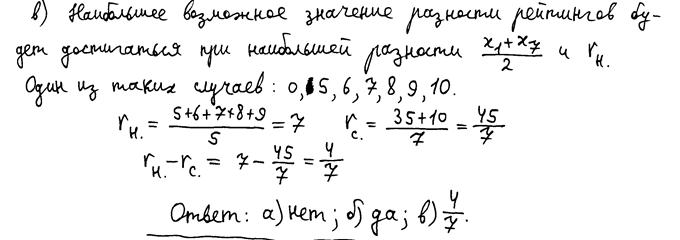 в) Наибольшее возможное значение разности рейтингов бу-
дет достигаться при наибольшей разности (x₁+x₇)/2 и rн.
Один из таких случаев: 0, 5, 6, 7, 8, 9, 10.
rн. = (5+6+7+8+9)/5 = 7 rс. = (35+10)/7 = 45/7
rн. - rс. = 7 - 45/7 = 4/7
Ответ: а) нет; б) да; в) 4/7.